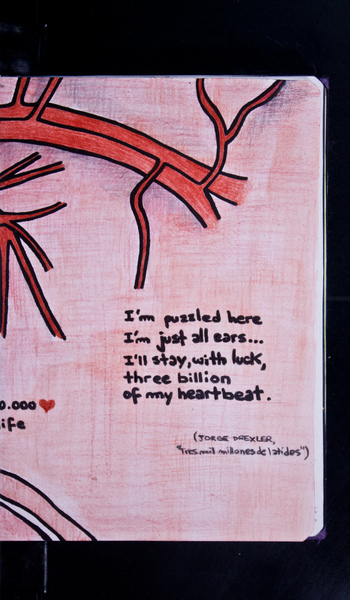 I'm puzzled here
I'm just all ears...
I'll stay, with luck,
three billion
of my heartbeat.
0.000
ife
(JORGE DREXLER,
"Tres mil millones de latidos")